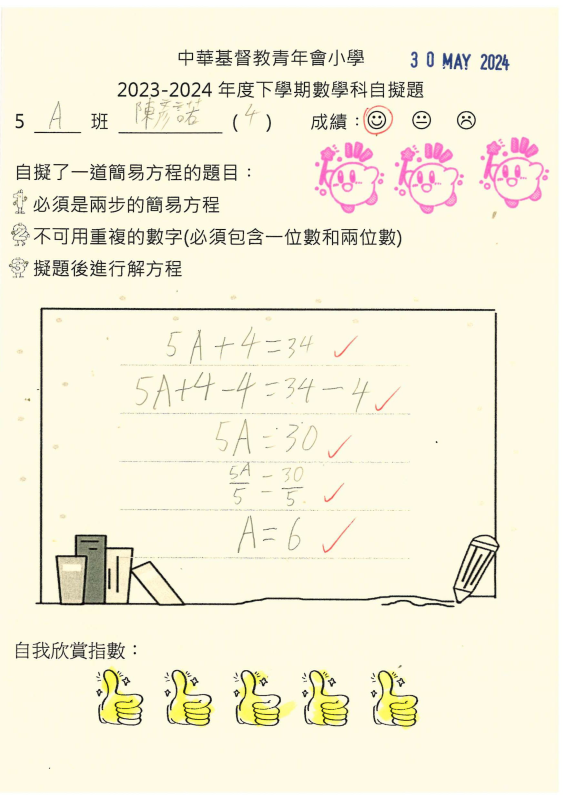 中華基督教青年會小學
30 MAY 2024
2023-2024 年度下學期數學科自擬題
5 A 班 陳彥諾 ( 4 ) 成績：
自擬了一道簡易方程的題目：
必須是兩步的簡易方程
不可用重複的數字(必須包含一位數和兩位數)
擬題後進行解方程
5A+4=34
5A+4-4=34-4
5A=30
5A/5=30/5
A=6
自我欣賞指數：